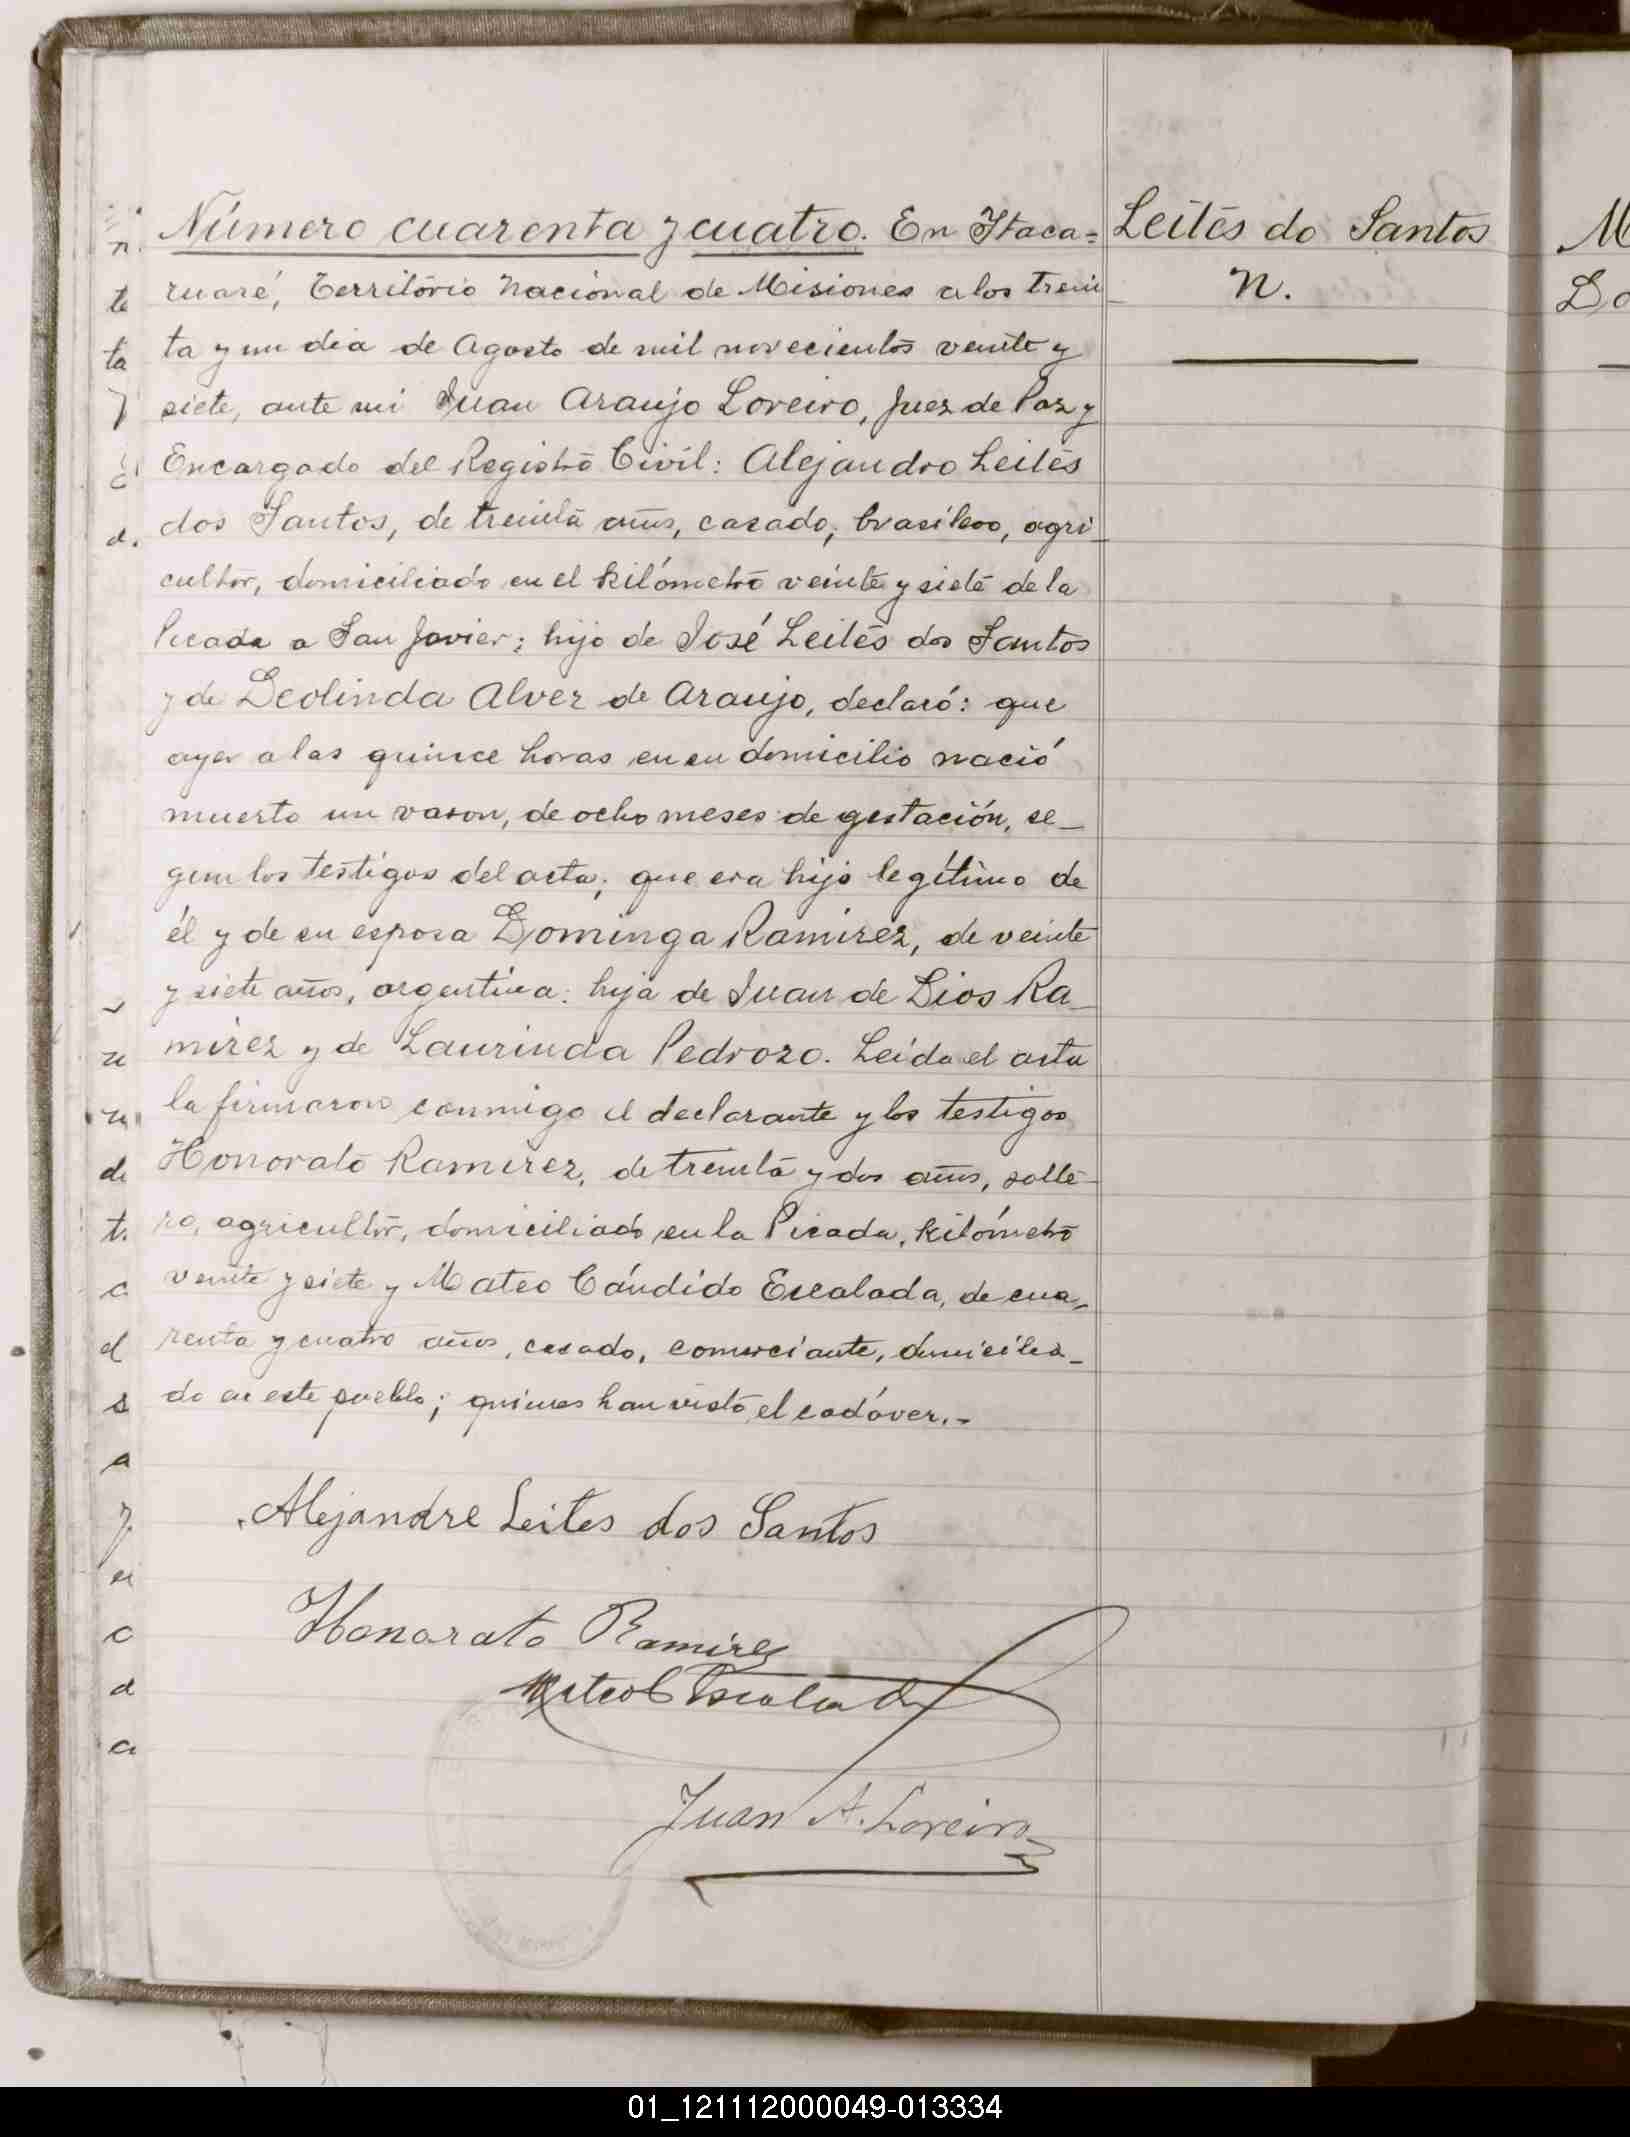 Número cuarenta y cuatro. En Itaca=
ruaré, Territorio Nacional de Misiones a los trein
ta y un dia de Agosto de mil novecientos veinte y
siete, ante mi Juan Araujo Loreiro, Juez de Paz y
Encargado del Registro Civil: Alejandro Leites
dos Santos, de treinta años, casado, brasilero, agri-
cultor, domiciliado en el kilómetro veinte y siete de la
Picada a San Javier; hijo de José Leites dos Santos
y de Deolinda Alvez de Araujo, declaró: que
ayer a las quince horas en su domicilio nació
muerto un varon, de ocho meses de gestación, se-
gun los testigos del acta; que era hijo legítimo de
él y de su esposa Dominga Ramirez, de veinte
y siete años, argentina: hija de Juan de Dios Ra-
mirez y de Laurinda Pedrozo. Leida el acta
la firmaron conmigo el declarante y los testigos
Honorato Ramirez, de treinta y dos años, solte-
ro, agricultor, domiciliado en la Picada, kilómetro
veinte y siete y Mateo Cándido Escalada, de cua-
renta y cuatro años, casado, comerciante, domicilia-
do en este pueblo; quienes han visto el cadáver.-
Alejandre Leites dos Santos
Honorato Ramirez
Mateo C Escalada
Juan A. Loreiro
Leites do Santos
N.
M
Do
01_121112000049-013334